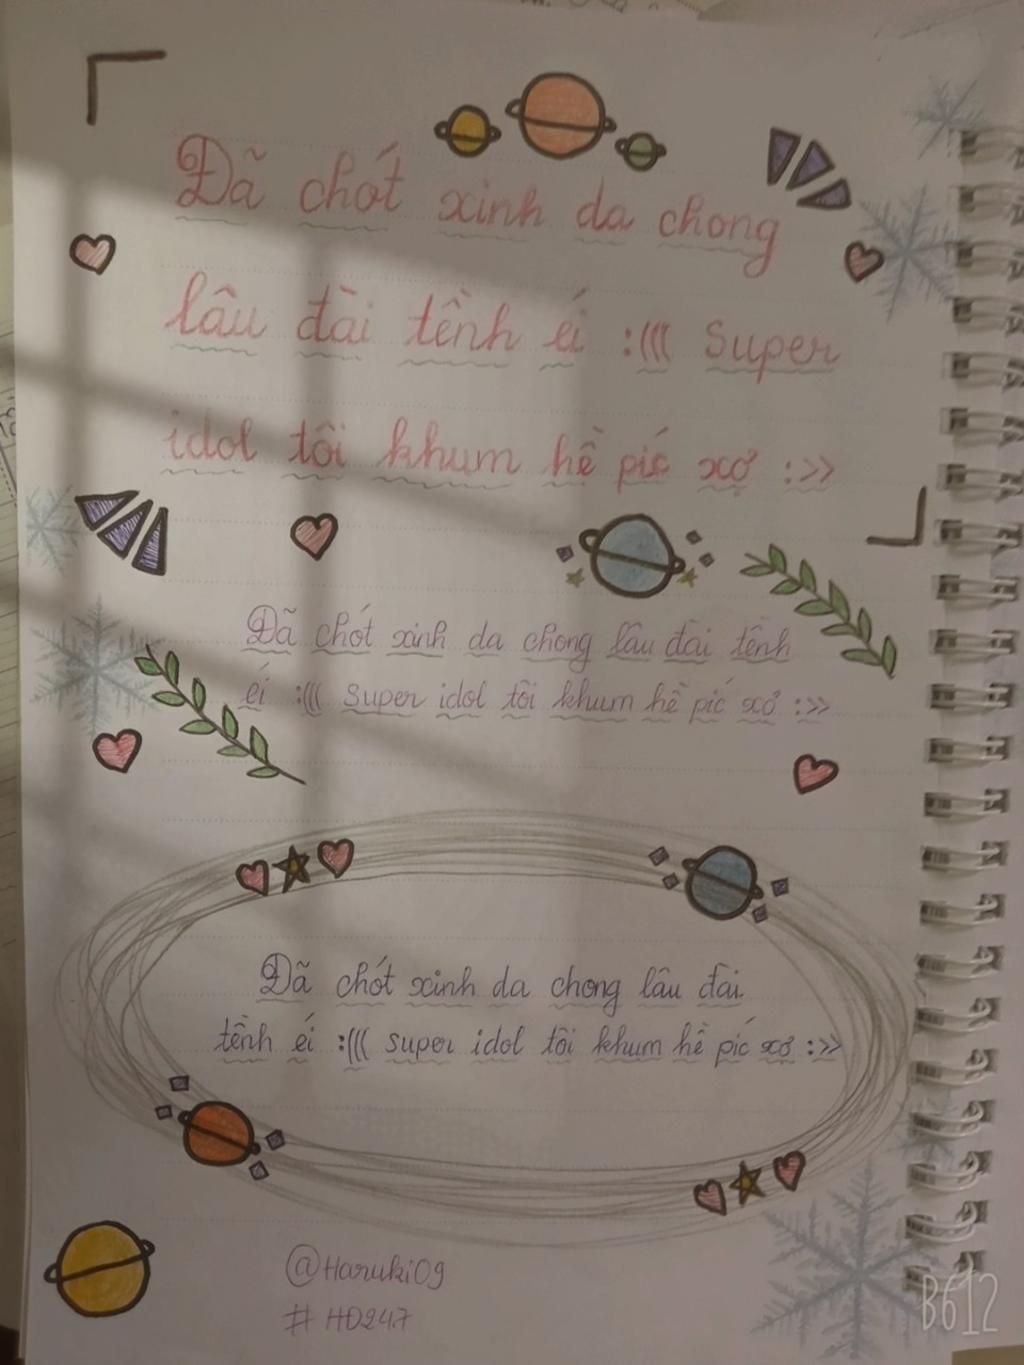 Đã chót xinh da chong
lâu đài tềnh éi :((( Super
idol tôi khum hề píc xợ :>>
Đã chót xinh da chong lâu đài tềnh
éi :((( super idol tôi khum hề píc xợ :>>
Đã chót xinh da chong lâu đài
tềnh éi :((( super idol tôi khum hề píc xợ :>>
@Haruki09
# HD247
B612